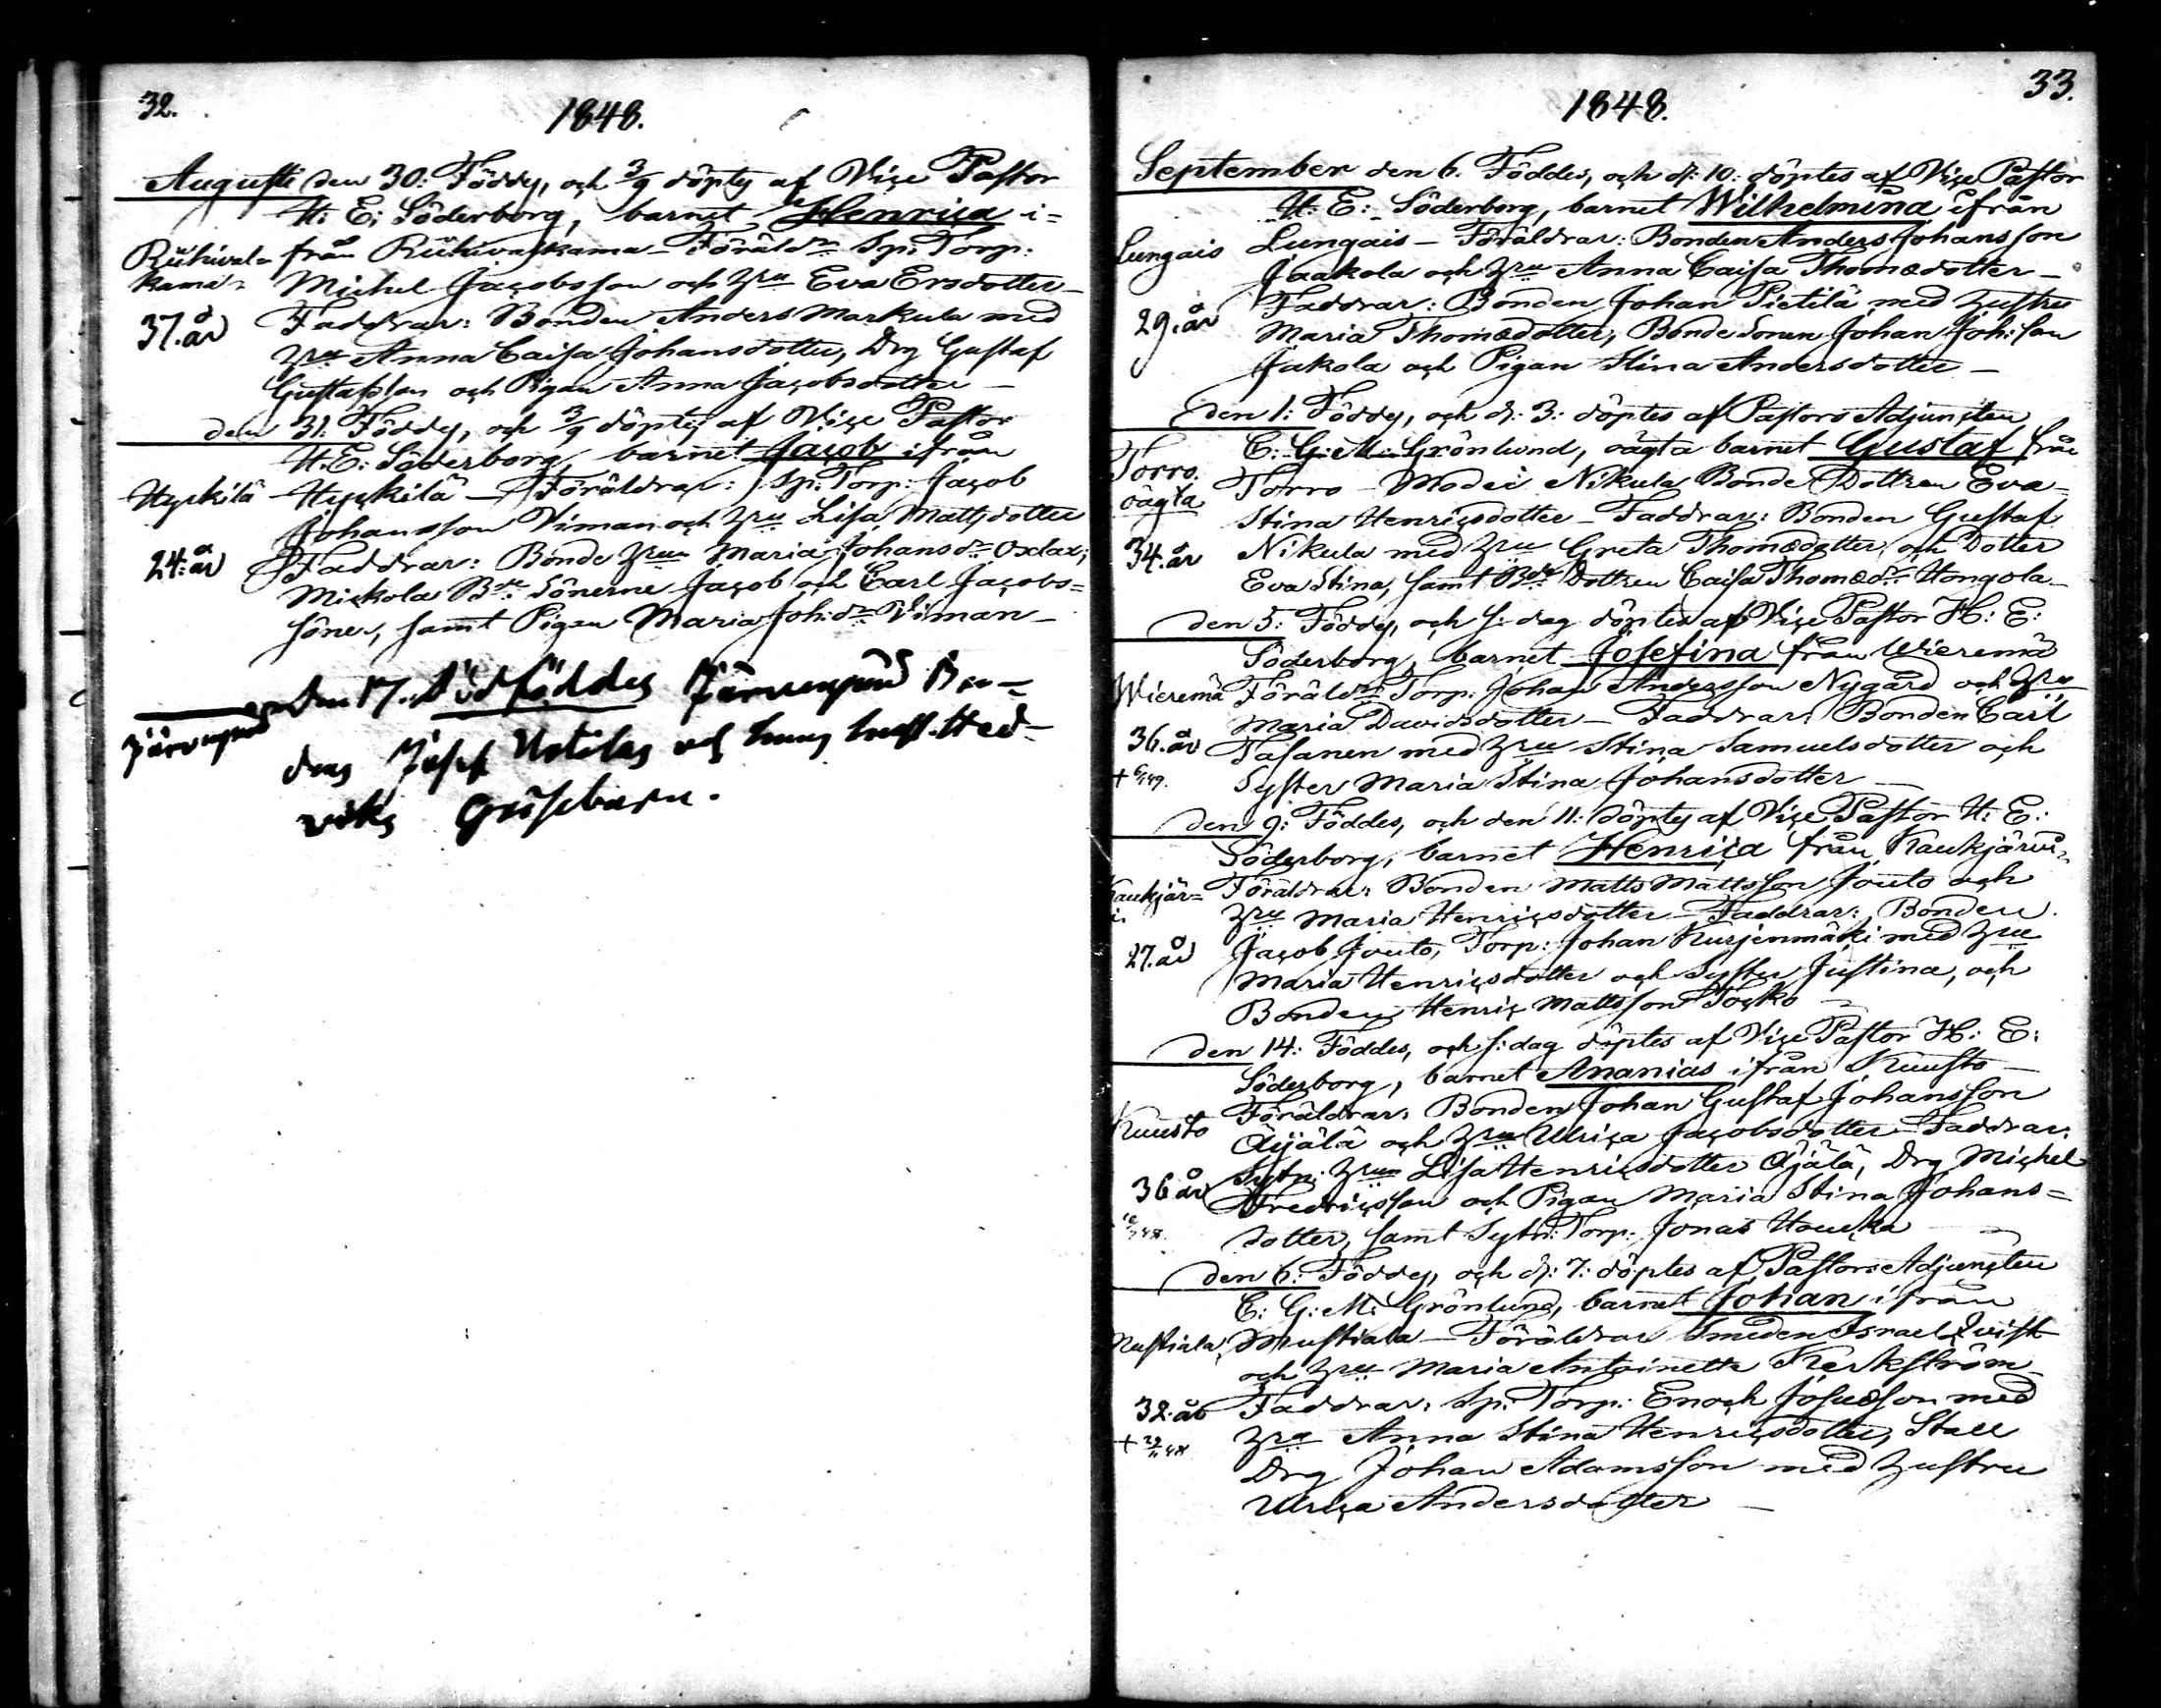 32.
1848.
Augusti den 30: Föddes, och 3/9 döptes af Vice Pastor
H: E: Söderborg, barnet Henrica i=
Riihivalkama från Riihivalkama – Föräldr. Sp: Torp:
Michel Jacobsson och Hru Eva Ersdotter –
37. år Faddrar: Bonden Anders Markula med
Hru Anna Caisa Johansdotter, Drg Gustaf
Gustafsson och Pigan Anna Jacobsdotter –
den 31. Föddes, och 3/9 döptes af Vice Pastor
H. E: Söderborg, barnet Jacob ifrån
Hyrkilä Hyrkilä – Föräldrar: Sp: Torp: Jacob
Johansson Viman och Hru Lisa Mattsdotter
24: år Faddrar: Bonde Hrun Maria Johansdr Oxlax,
Mickola Bde Sönerne Jacob och Carl Jacobs=
söner, samt Pigan Maria Joh:dr Viman –
den 17. Dödföddes Järvenpää Bon-
Järvenpää
dens Josef Uotilas och hans hust. Hed-
viks Gossebarn.
33.
1848.
September den 6. Föddes, och d: 10: döptes af Vice Pastor
H: E: Söderborg, barnet Wilhelmina ifrån
Lungais Lungais – Föräldrar: Bonden Anders Johansson
Jaakola och Hru Anna Caisa Thomædotter –
29. år Faddrar: Bonden Johan Pietilä med hustru
Maria Thomædotter, Bonde Sonen Johan Joh:son
Jakola och Pigan Stina Andersdotter –
den 1: Föddes, och d: 3: döptes af Pastors Adjuncten
C: G: M: Grönlund, oägta barnet Gustaf från
Torro. oägta Torro – Moder Nikula Bonde Dottren Eva
Stina Henricsdotter – Faddrar: Bonden Gustaf
34. år Nikula med Hru Greta Thomædotter, och Dotter
Eva Stina, samt Bde Dottren Caisa Thomædr Hongola –
den 5: Föddes, och s: dag döptes af Vice Pastor H: E:
Söderborg, barnet Josefina från Wieremä
Wieremä Föräldr. Torp: Johan Andersson Nygård och Hru
Maria Davidsdotter – Faddrar: Bonden Carl
36. år Tasanen med Hru Stina Samuelsdotter och
Syster Maria Stina Johansdotter –
den 9: Föddes, och den 11: döptes af Vice Pastor H: E:
Söderborg, barnet Henrica från Kaukjärvi
Kaukjär= Föräldrar: Bonden Matts Mattsson Jouto och
Hru Maria Henricsdotter – Faddrar: Bonden
27. år Jacob Jouto, Torp: Johan Kurjenmäki med Hru
Maria Henricsdotter och Syster Justina, och
Bonden Henric Mattsson
den 14: Föddes, och s: dag döptes af Vice Pastor H: E:
Söderborg, barnet Ananias ifrån Kuusto –
Kuusto Föräldrar: Bonden Johan Gustaf Johansson
Äijälä och Hru Ulrica Jacobsdotter – Faddrar:
36 år Sytn: Hrun Lisa Henricsdotter Äijälä, Drg Michel
Fredricsson och Pigan Maria Stina Johans=
dotter, samt Sytn: Torp: Jonas Haucka
den 6: Föddes, och d: 7: döptes af Pastors Adjuncten
C: G: M: Grönlund, barnet Johan ifrån
Mustiala Mustiala – Föräldrar Smeden Israel Qvist
och Hru Maria Antoinetta
32. år Faddrar: Sp: Torp: Enoch Josuæson med
Hru Anna Stina Henricsdotter, Stall
Drg Johan Adamsson med hustru
Ulrica Andersdotter –